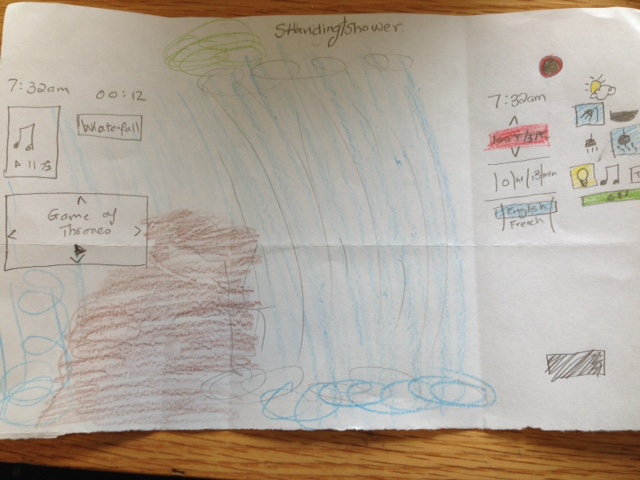 Standing Shower
7:32am
00:12
Waterfall
Game of
Thrones
7:32am
English
French